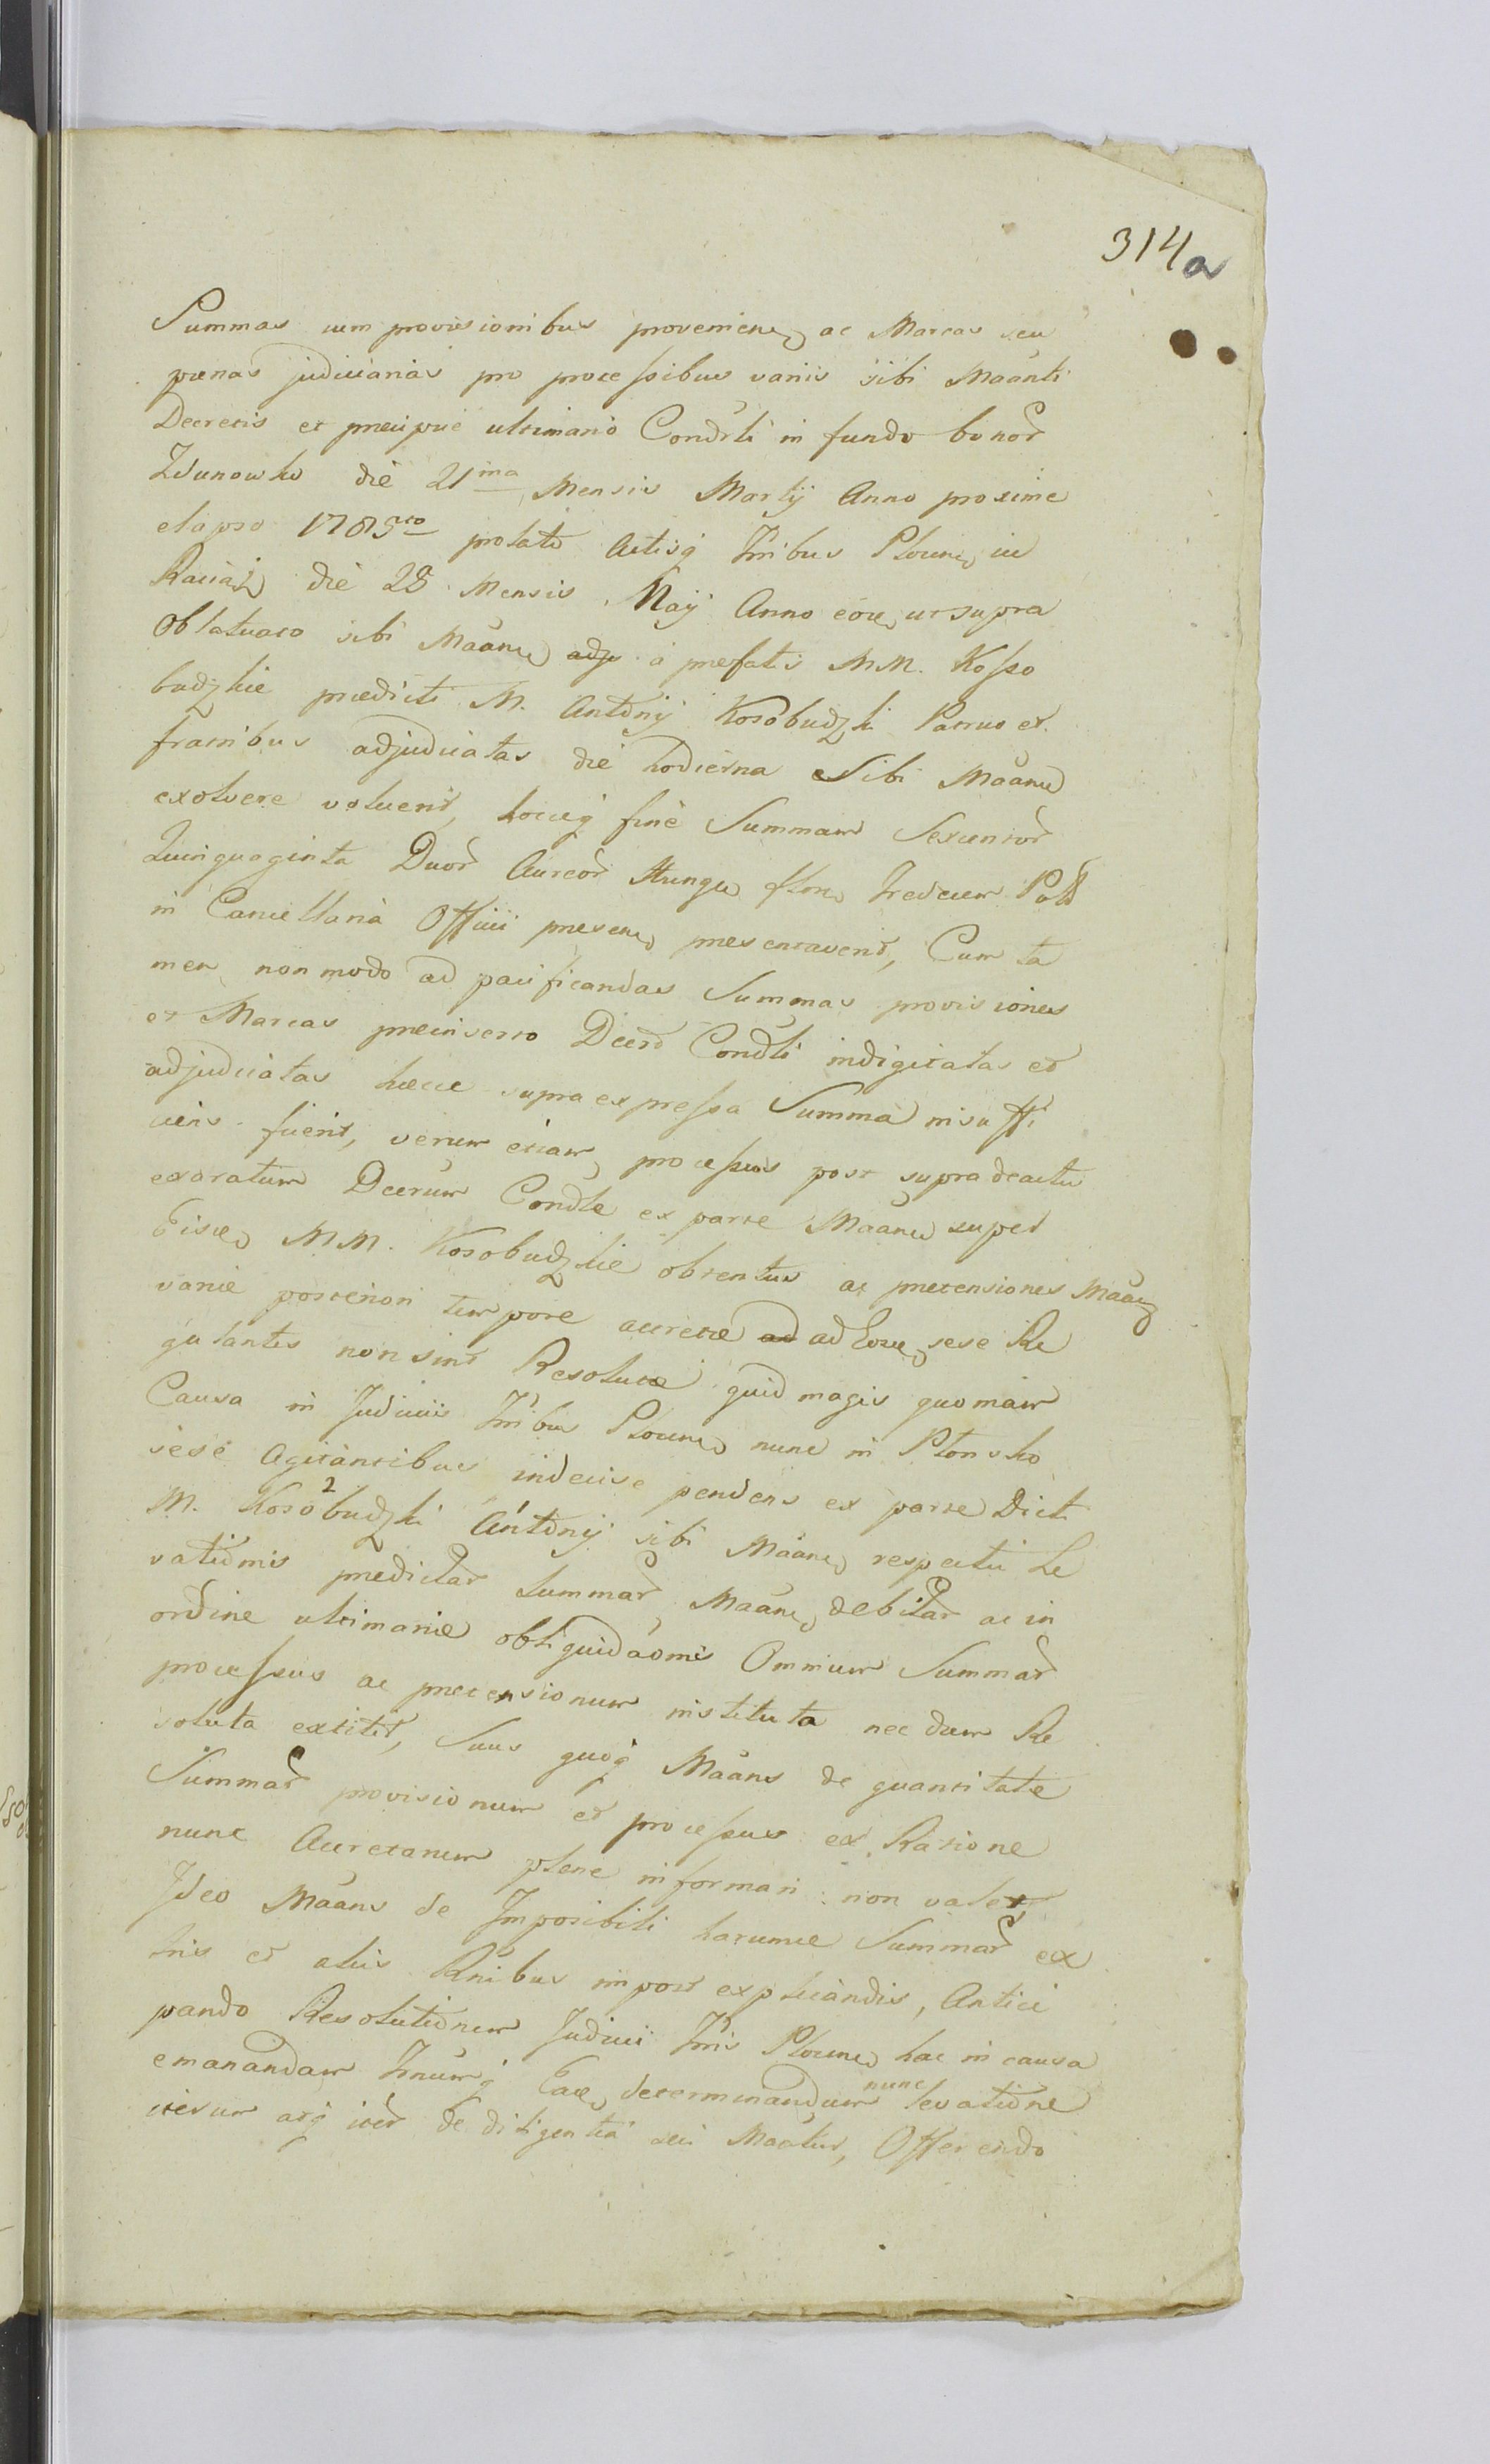 314a
Summas cum provisionibus provenien, ac Marcas seu
pænas judiciarias pro processibus variis sibi Maanti
Decretis et præcipue ultimario Condrli in fundo bonor
Zdunowko die 21ma Mensis Martij Anno proxime
elapso 1785to prolato Actisq Trribus Plocen, in
Raciąż die 28 Mensis Maij Anno eou, ut supra
Oblatuato sibi Maann, adju à præfatis MM. Kosso
budzkie prædicti M. Antonij Kosobudzki Patruo et
fratribus adjudicatas die hodierna sibi Maann
exolvere voluerit, hocceq fine Summam Sexcentor
Quinquaginta Duor Aureor Hungu, flor, Tredecim Poll
in Cancellaria Officii præsen, præsentaverit, Cum ta
men non modo ad pacificandas Summas provisiones
et Marcas præinserto Decro Condli indigitatas et
adjudicatas hæcce supra expressa Summa insuffi
ciens fuerit, verum etiam processus post supra dcactu
exaratum Decrum Condle ex parte Maann, super
Eisce, MM. Kosobudzkie obtentus ac prætensiones Maann
variæ posteriori tempore accretæ ad ad Eosce, sese Re
gulantes non sint Resolutæ quid magis quoniam
Causa in Judiciis Trribus Plocen, nunc in Płonsko
sese Agitantibus indecise pendens ex parte Dicti
M. Kosobudzki 2 Antonij 1 sibi Maann, respectu Le
vationis prædictar summar Maann, debitar ac in
ordine ultimariæ obliquidaonis Omnium Summar
processus ac prætensionum instituta nec dum Re
soluta extitit, Suus quoq Maans de quantitate
Summar provisionum et processus ex Ratione
nunc Accretarum plene informari non valet,
Ideo Maans de Impossibili harumce Summar ex
his et aliis Rnibus impost explicandis, Antici
pando Resolutionem Judicii Trris Plocen, hac in causa
emanandam Tnumq Eace, determinandum nunc levatione
iterum atq iter de diligentia sui Maatur, Offerendo